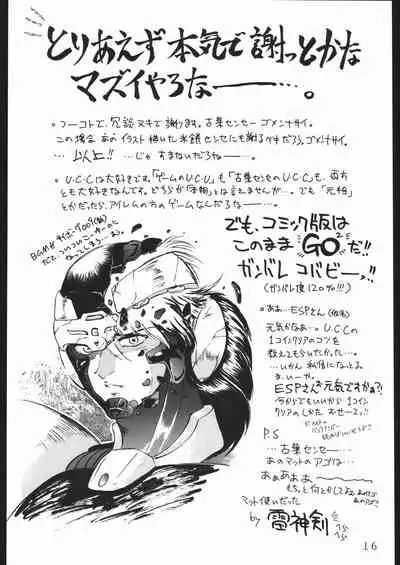 とりあえず本気で謝っとかな
マズイやろなー――。
。つーコトで、冗談ヌキで謝ります。古葉センセーゴメンナサイ。
この場合あのイラスト描いた
センセにも謝る
ゴメンナサイ。
…以上!! …じゃすまないだろねー…
。U.C.Cは大好きです。「ゲームのU.C.C」も「古葉センセのU.C.C」も、両方
とも大好きなんです。どちらが「本物」とは言えませんが…。でも「元祖」
とかだったら、アイレムの方のゲームなんだろなー…
でも、コミック版は
このまま"GO"だ!!
ガンバレコバピーッ!!
(ガンバレ度120%!!!)
。ああ…ESPさん(仮名)
元気かなあ…。U.C.Cの
1コインクリアのコツを
教えてもらいたかった…
…いかん私信になっとる
まいーや。
ESPさん元気ですかぁ?!
今からでもいいから1コイン
クリアのしかたおせーてッ!!
P.S
…古葉センセー…
あのマットのアゴは…
あぁあぁぁ―
もちっと何とかして
マット使いだった
by 雷神剣
16